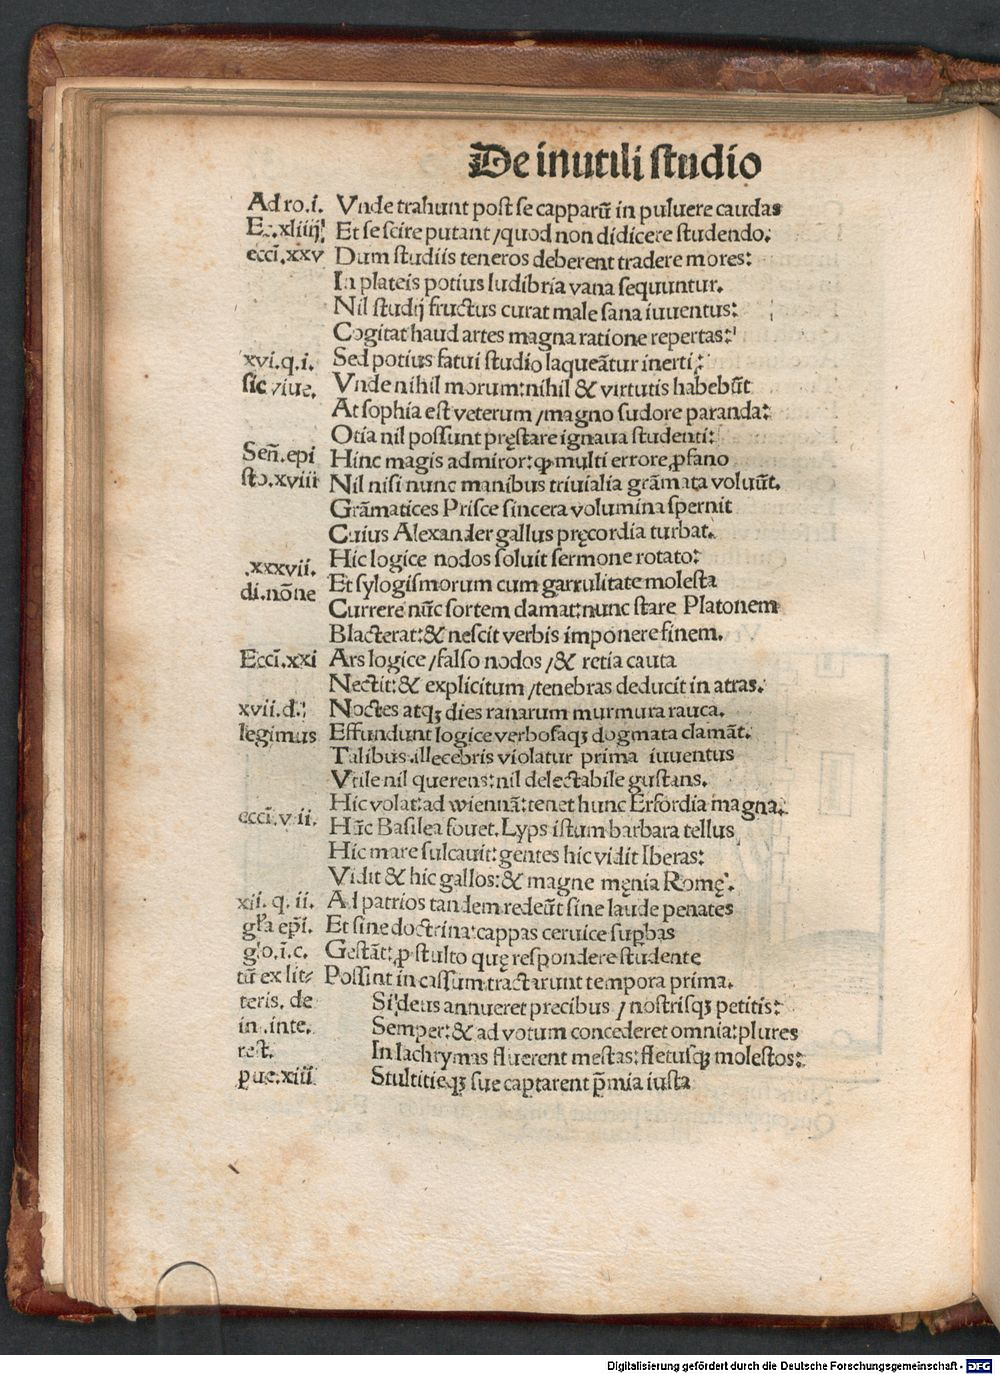 De inutili studio
Ad ro.i. Vnde trahunt post se capparū in puluere caudas
Ec.xliiij Et se scire putant/quod non didicere studendo.
ecci.xxv Dum studiis teneros deberent tradere mores:
In plateis potius ludibria vana sequuntur.
Nil studij fructus curat male sana iuuentus:
Cogitat haud artes magna ratione repertas:
xvi.q.i. Sed potius fatui studio laqueātur inerti:
sic viue. Vnde nihil morum:nihil & virtutis habebūt
At sophia est veterum/magno sudore paranda:
Otia nil possunt pręstare ignaua studenti:
Señ.epi Hinc magis admiror:ꝙ multi errore ꝓfano
sto.xviii Nil nisi nunc manibus triuialia grāmata voluūt.
Grāmatices Prisce sincera volumina spernit
Cuius Alexander gallus pręcordia turbat.
.xxxvii. Hic logice nodos soluit sermone rotato:
di.nōne Et sylogismorum cum garrulitate molesta
Currere nūc sortem clamat:nunc stare Platonem
Blacterat:& nescit verbis imponere finem.
Ecci.xxi Ars logice/falso nodos/& retia cauta
Nectit:& explicitum/tenebras deducit in atras.
xvii.d. Noctes atqꝫ dies ranarum murmura rauca.
legimus Effundunt logice verbosaqꝫ dogmata clamāt.
Talibus illecebris violatur prima iuuentus
Vtile nil querens:nil delectabile gustans.
Hic volat:ad wiennā:tenet hunc Erfordia magna.
ecci.vii. Hūc Basilea fouet.Lyps istum barbara tellus
Hic mare sulcauit:gentes hic vidit Iberas:
Vidit & hic gallos:& magne męnia Romę.
xii.q.ii. Ad patrios tandem redeūt sine laude penates
gľa epi. Et sine doctrina:cappas ceruice suꝑbas
glo.ī.c. Gestāt:ꝓ stulto quę respondere studente
tū ex lit⸗ Possint in cassum tractarunt tempora prima.
teris. de Si deus annueret precibus / nostrisqꝫ petitis:
in.inte. Semper:& ad votum concederet omnia:plures
rest. In lachrymas fluerent mestas:fletusqꝫ molestos:
ꝓue.xiii Stultitieqꝫ sue captarent p̄mia iusta
Digitalisierung gefördert durch die Deutsche Forschungsgemeinschaft - DFG